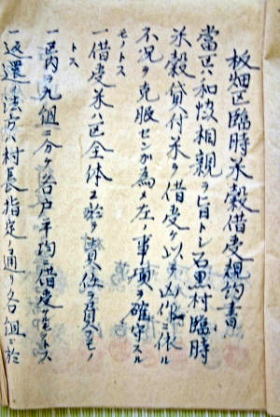 板畑区臨時米穀借受規約書
当区ハ和協相親ヲ旨トシ石黒村臨時
米穀貸付米ヲ借受ケ以テ凶作ニ依ル
不況ヲ克服センガ為メ左ノ事項ヲ確守スル
モノトス
一借受米ハ区全体ニ於テ責任ヲ負フモノ
トス
一区内ヲ九組ニ分ケ各戸平均借受クルモノトス
一返還ノ法方ハ村長指定ノ通リ各組ニ於